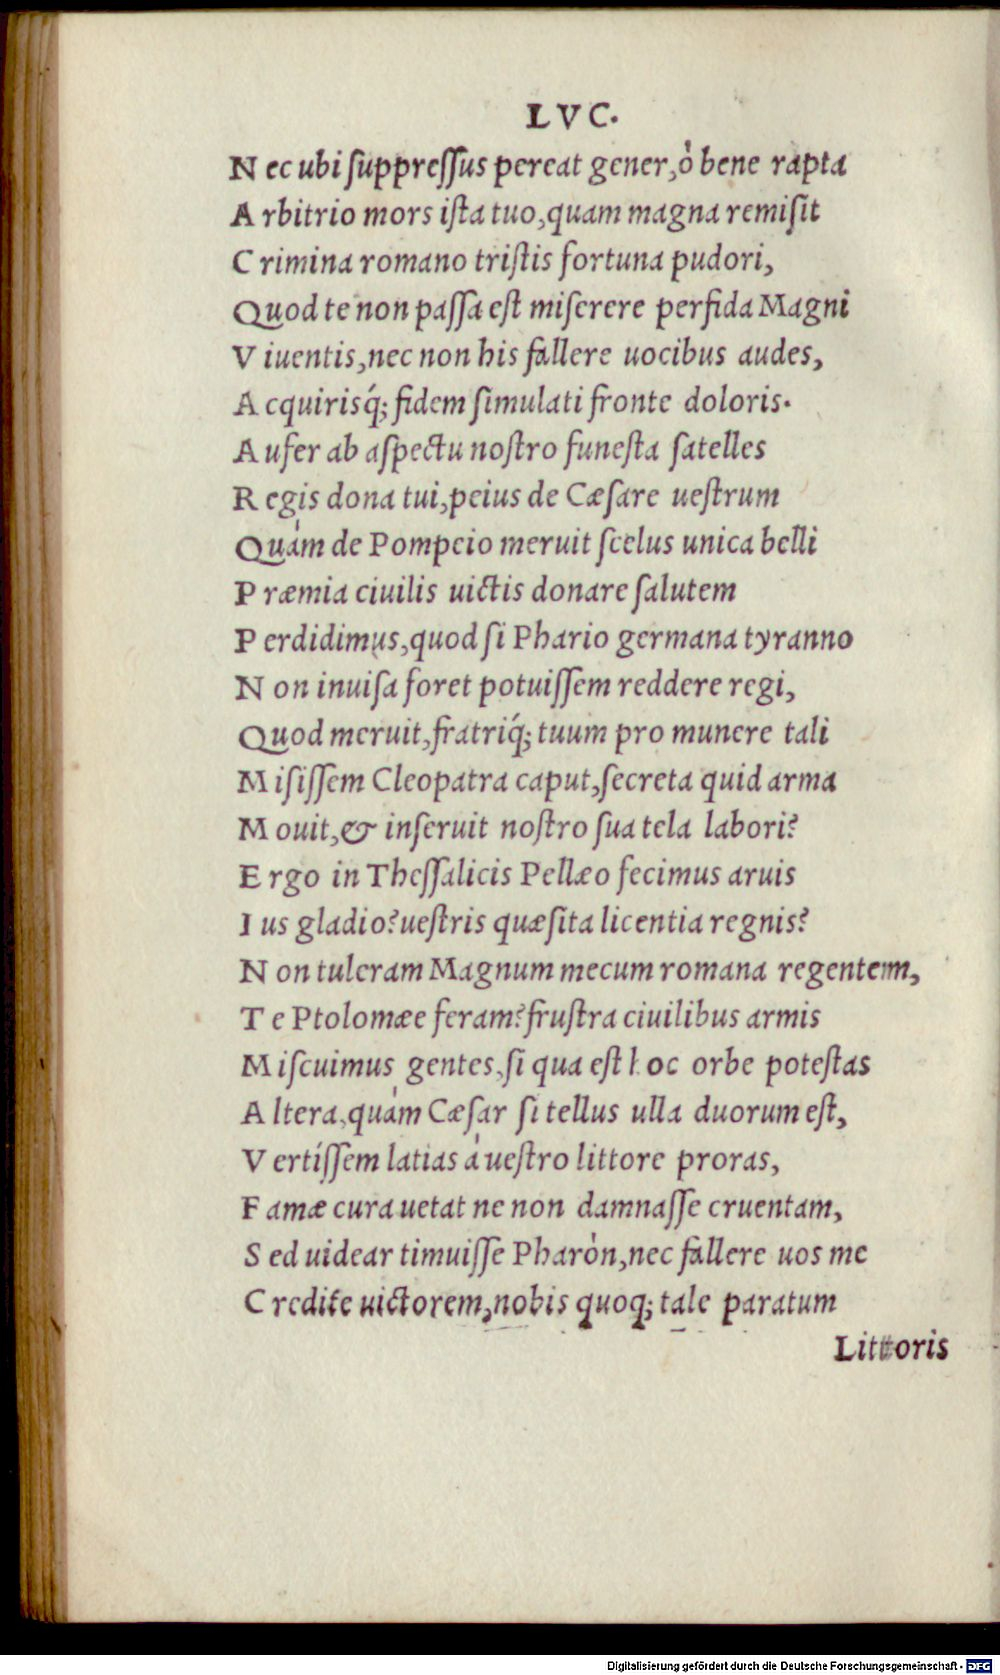 LVC.
N ec ubi ſuppreſſus pereat gener, ò bene rapta
A rbitrio mors iſta tuo, quam magna remiſit
C rimina romano triſtis fortuna pudori,
Quod te non paſſa eſt miſerere perfida Magni
V iuentis, nec non his fallere uocibus audes,
A cquirisq́; fidem ſimulati fronte doloris.
A ufer ab aſpectu noſtro funeſta ſatelles
R egis dona tui, peius de Cæſare ueſtrum
Quàm de Pompeio meruit ſcelus unica belli
P ræmia ciuilis uictis donare ſalutem
P erdidimus, quod ſi Phario germana tyranno
N on inuiſa foret potuiſſem reddere regi,
Quod meruit, fratriq́; tuum pro munere tali
M iſiſſem Cleopatra caput, ſecreta quid arma
M ouit, & inſeruit noſtro ſua tela labori?
E rgo in Theſſalicis Pellæo fecimus aruis
I us gladio? ueſtris quæſita licentia regnis?
N on tuleram Magnum mecum romana regentem,
T e Ptolomæe feram? fruſtra ciuilibus armis
M iſcuimus gentes, ſi qua eſt hoc orbe poteſtas
A ltera, quàm Cæſar ſi tellus ulla duorum eſt,
V ertiſſem latias à ueſtro littore proras,
F amæ cura uetat ne non damnaſſe cruentam,
S ed uidear timuiſſe Pharòn, nec fallere uos me
C redite uictorem, nobis quoq; tale paratum
Littoris
Digitalisierung gefördert durch die Deutsche Forschungsgemeinschaft - DFG